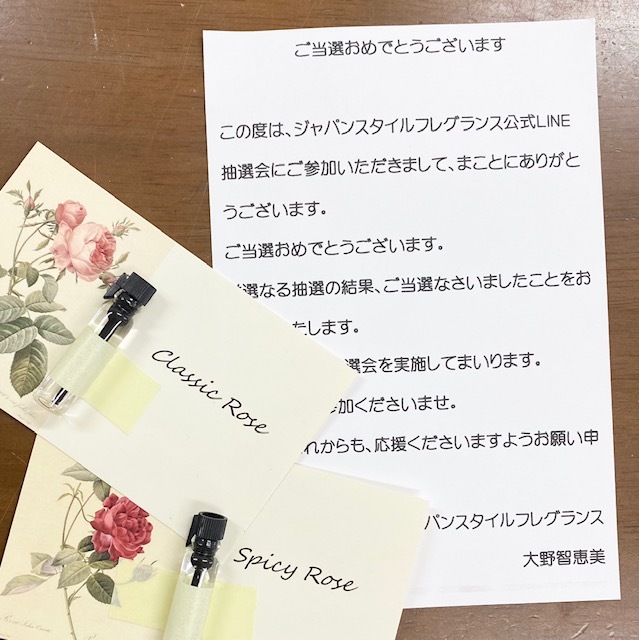 ご当選おめでとうございます
この度は、ジャパンスタイルフレグランス公式LINE
抽選会にご参加いただきまして、まことにありがと
うございます。
ご当選おめでとうございます。
選なる抽選の結果、ご当選なさいましたことをお
たします。
選会を実施してまいります。
参加くださいませ。
れからも、応援くださいますようお願い申
パンスタイルフレグランス
大野智恵美
Classic Rose
Spicy Rose